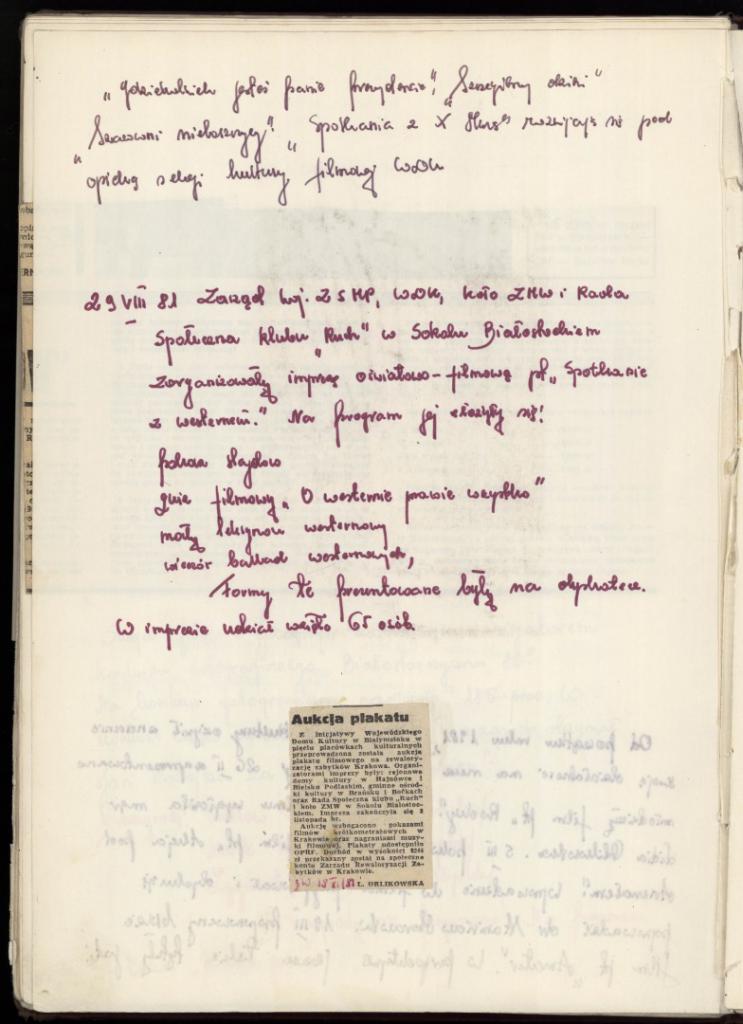 „Gdziekolwiek jesteś panie prezydencie”, „Szczęśliwy
„Szanowni nieboszczycy”. Spotkania z X Muzą rozwijają się pod
opieką sekcji kultury filmowej WDK
29 VIII 81 Zarząd woj. ZSMP, WDK, koło ZMW i Rada
Społeczna klubu „Ruch” w Sokolu Białostockiem
zorganizowały imprezę oświatowo-filmową pt. „Spotkanie
z westernem.” Na program jej złożyły się:
pokaz slajdów
quiz filmowy „O westernie prawie wszystko”
mały leksykon westernowy
wieczór ballad westernowych,
Formy te prezentowane były na dyskotece.
W imprezie udział wzięło 65 osób.
Aukcja plakatu
Z inicjatywy Wojewódzkiego
Domu Kultury w Białymstoku w
pięciu placówkach kulturalnych
przeprowadzona została aukcja
plakatu filmowego na rewaloryzację
zabytków Krakowa. Organizatorami
imprezy były: rejonowe
domy kultury w Hajnówce i
Bielsku Podlaskim, gminne ośrodki
kultury w Brańsku i Boćkach
oraz Rada Społeczna klubu „Ruch”
i koło ZMW w Sokolu Białostockiem.
Impreza zakończyła się 2
listopada br.
Aukcję wzbogacono pokazami
filmów krótkometrażowych w
Krakowie oraz nagraniami muzyki
filmowej. Plakaty udostępniło
OPRF. Dochód w wysokości
zł przekazany został na społeczne
konto Zarządu Rewaloryzacji Zabytków
w Krakowie.
Ł. ORLIKOWSKA